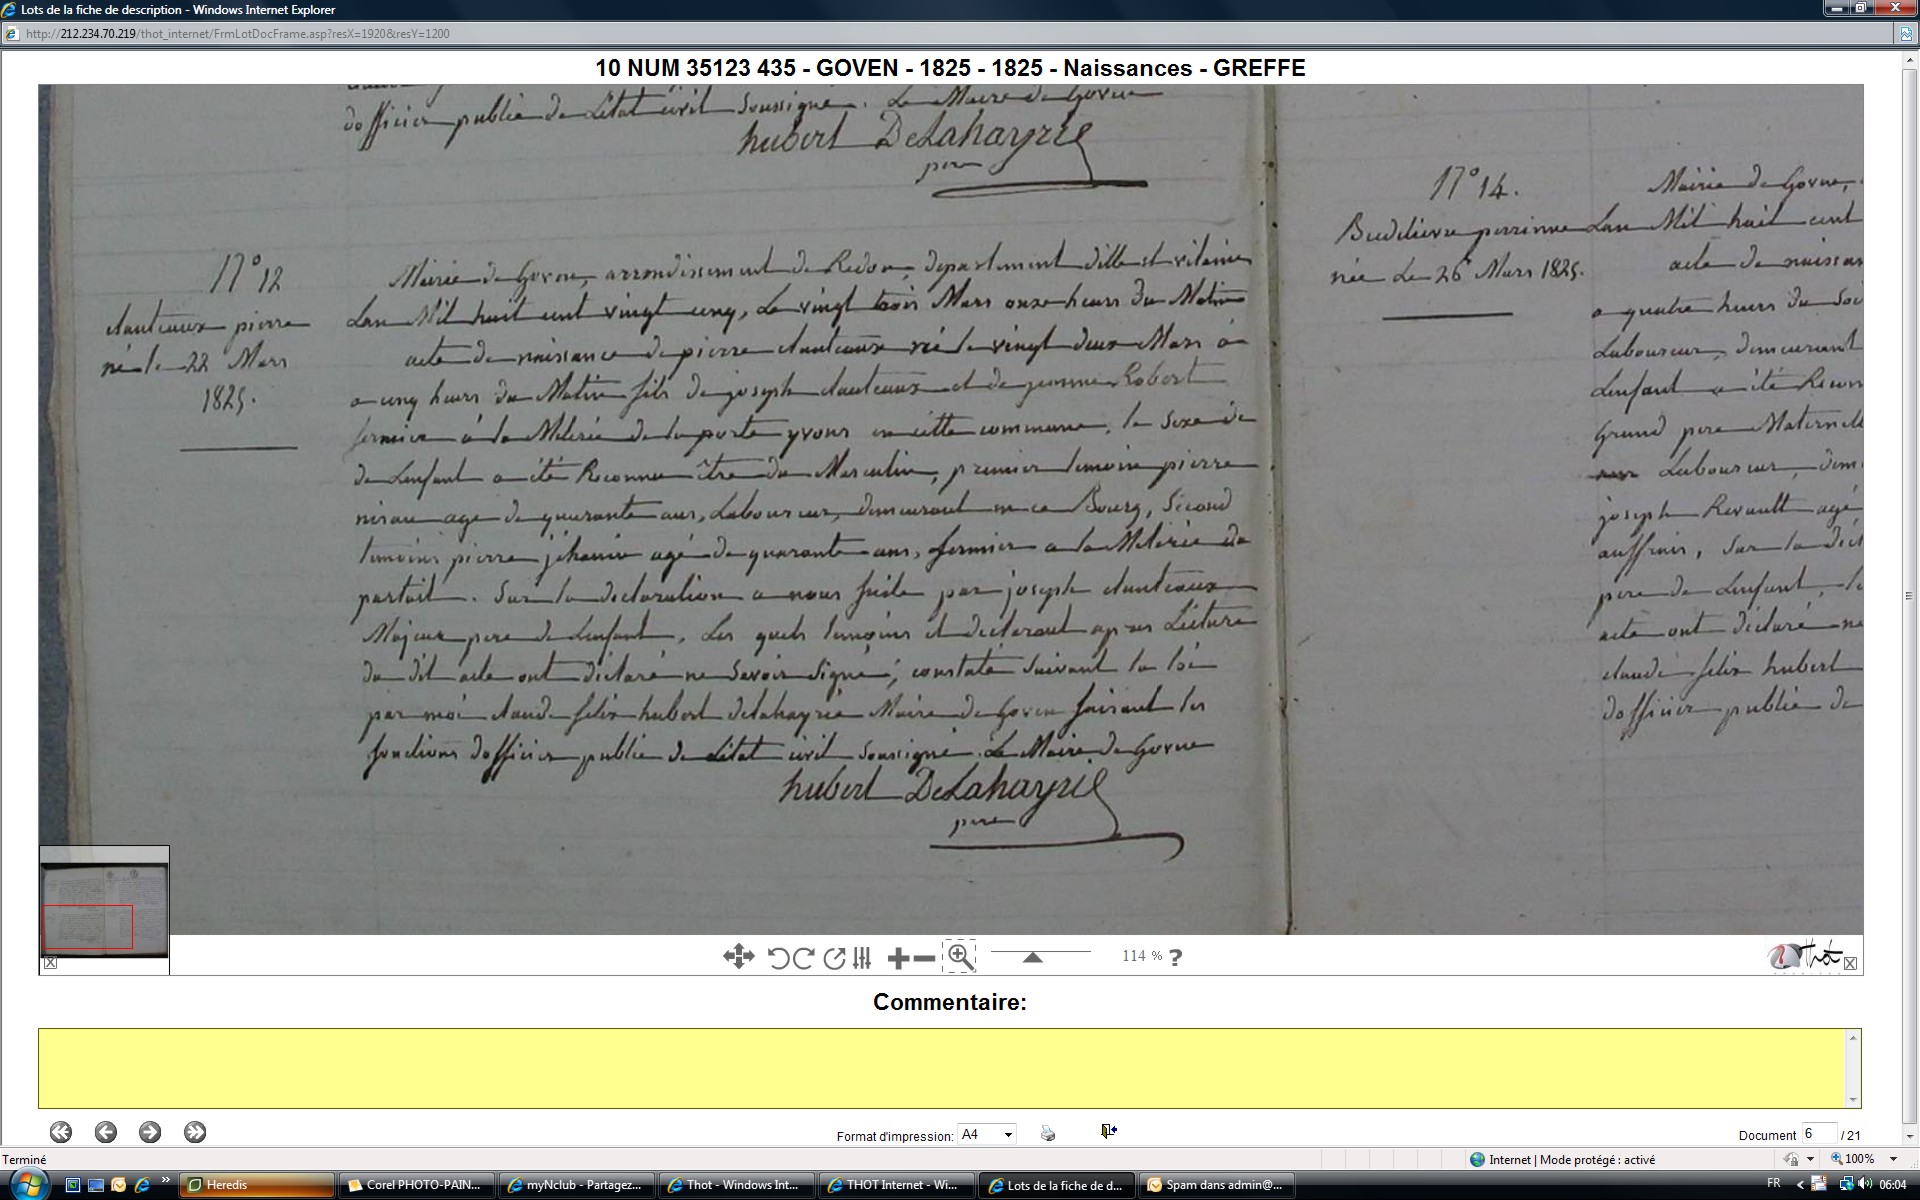 Lots de la fiche de description - Windows Internet Explorer
http://212.234.70.219/thot_internet/FrmLotDocFrame.asp?resX=1920&resY=1200
10 NUM 35123 435 - GOVEN - 1825 - 1825 - Naissances - GREFFE
dofficier public de Létat civil Soussigné. Le Maire de Goven
hubert DeLahayrie
pere
N° 12
clauteaux pierre
né le 22 Mars
1825.
Mairie de Goven, arrondissement de Redon, departement dille et vilaine
Lan Mil huit cent vingt cinq, Le vingt trois Mars onze heurs du Matin
acte de naissance de pierre clauteaux né le vingt deux Mars à
a cinq heurs du Matin fils de joseph clauteaux et de jeanne Robert
fermier à la Méterie de la porte yvons en cette commune, le Sexe de
de Lenfant a été Reconnu être du Masculin, premier temoin pierre
agé de quarante ans, Laboureur, demeurant en ce Bourg, Second
temoins pierre jéhanin agé de quarante ans, fermier a la Méterie de
partait. Sur la declaration a nous faite par joseph clauteaux
Majeur pere de Lenfant, Les quels temoins et declarant apres Lecture
du dit acte ont déclaré ne Savoir Signé, constaté Suivant la loi
par moi claude félix hubert delahayrie Maire de Goven faisant les
fonctions dofficier public de Létat civil Soussigné. Le Maire de Goven
hubert DeLahayrie
pere
N° 14.
perrinne
née Le 26 Mars 1825.
Mairie de Goven,
Lan Mil huit cent
acte de naissan
a quatre heurs du Soi
Laboureur, demeurant
Lenfant a été Recon
Grand pere Maternel
Laboureur, dem
joseph Revault agé
auffrais, Sur la décl
pere de Lenfant, le
acte ont déclaré ne
claude félix hubert
dofficier public de
114 % ?
Thot
Commentaire:
Format d'impression: A4
Document 6 / 21
Terminé
Internet | Mode protégé : activé
100%
Heredis
Corel PHOTO-PAIN...
myNclub - Partagez...
Thot - Windows Int...
THOT Internet - Wi...
Lots de la fiche de d...
Spam dans admin@...
FR
06:04